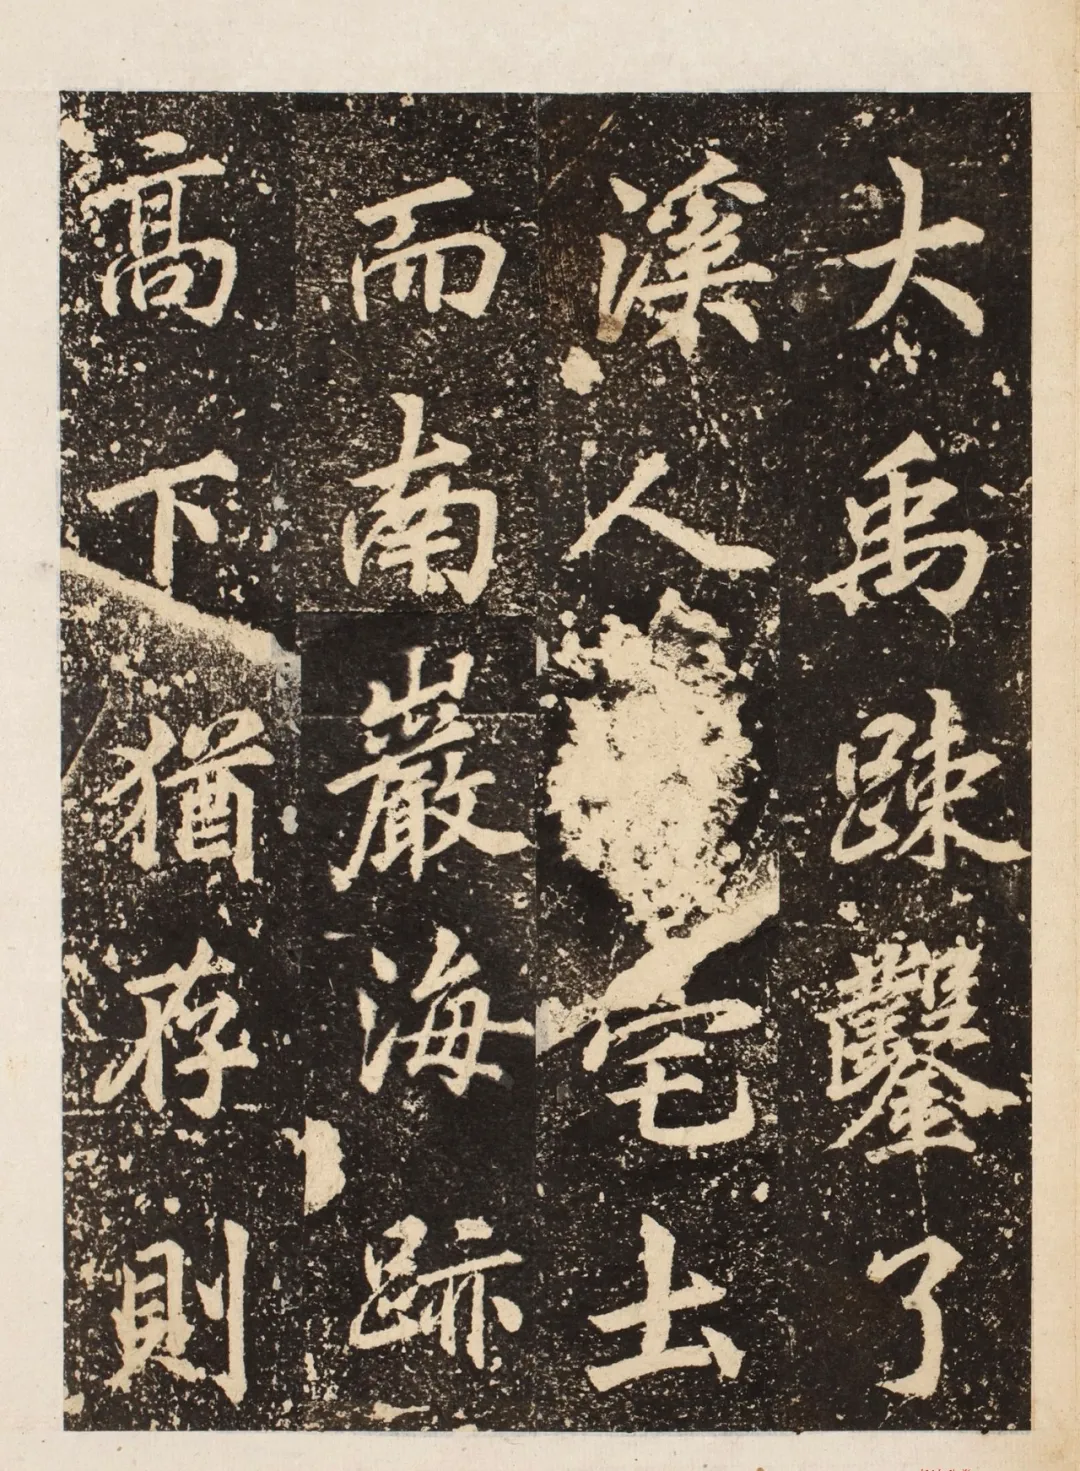 大禹踈鑿了
溪人宅土
而南巖海跡
髙下猶存則